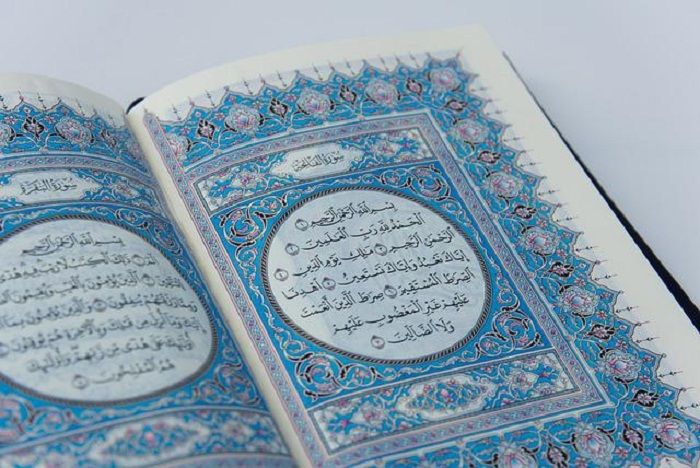 سُورَةُ الفَاتِحَةِ
بِسْمِ ٱللَّهِ ٱلرَّحْمَٰنِ ٱلرَّحِيمِ ١
ٱلْحَمْدُ لِلَّهِ رَبِّ ٱلْعَٰلَمِينَ ٢
ٱلرَّحْمَٰنِ ٱلرَّحِيمِ ٣ مَٰلِكِ يَوْمِ ٱلدِّينِ ٤
إِيَّاكَ نَعْبُدُ وَإِيَّاكَ نَسْتَعِينُ ٥ ٱهْدِنَا
ٱلصِّرَٰطَ ٱلْمُسْتَقِيمَ ٦ صِرَٰطَ ٱلَّذِينَ أَنْعَمْتَ
عَلَيْهِمْ غَيْرِ ٱلْمَغْضُوبِ عَلَيْهِمْ
وَلَا ٱلضَّآلِّينَ ٧
سُورَةُ البَقَرَةِ
بِسْمِ ٱللَّهِ ٱلرَّحْمَٰنِ ٱلرَّحِيمِ
ذَٰلِكَ ٱلْكِتَٰبُ لَا رَيْبَ فِيهِ
ٱلَّذِينَ يُؤْمِنُونَ بِٱلْغَيْبِ وَيُقِيمُونَ
رَزَقْنَٰهُمْ يُنفِقُونَ ٣ وَٱلَّذِينَ يُؤْمِنُونَ
إِلَيْكَ وَمَآ أُنزِلَ مِن قَبْلِكَ
أُو۟لَٰٓئِكَ
عَلَىٰ هُدًى مِّن رَّبِّهِمْ وَأُو۟لَٰٓئِكَ
هُمُ ٱلْمُفْلِحُونَ ٥